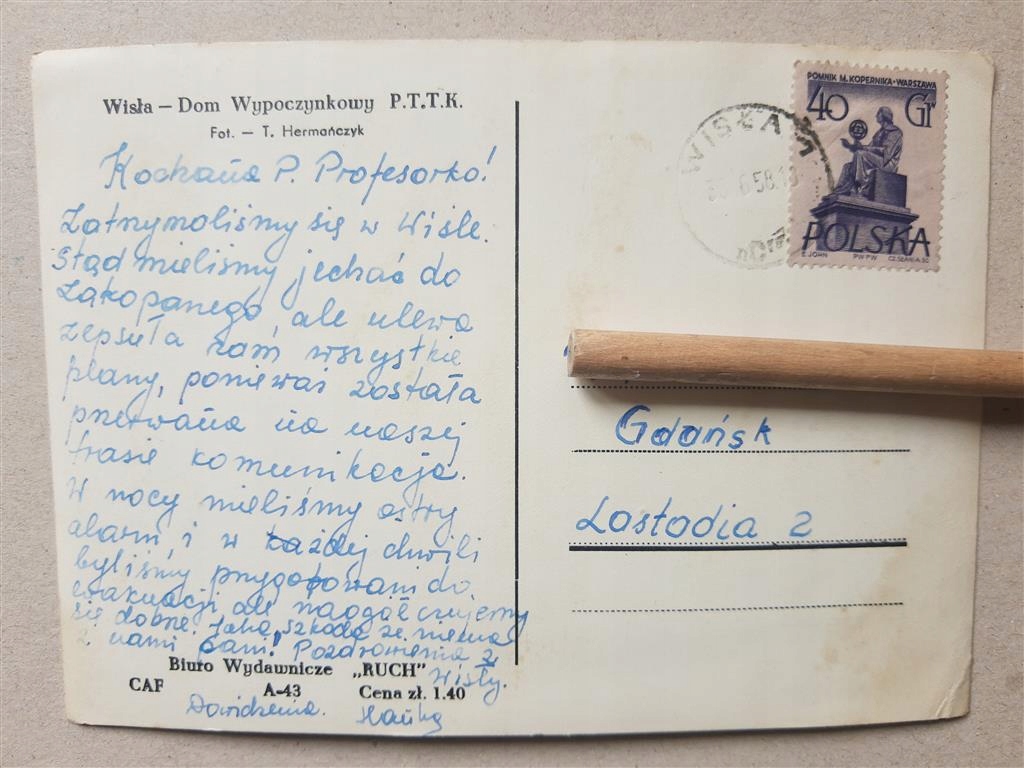 Wisła – Dom Wypoczynkowy P.T.T.K.
Fot. – T. Hermańczyk
Kochana P. Profesorko!
Zatrzymaliśmy się w Wiśle.
Stąd mieliśmy jechać do
Zakopanego, ale ulewa
zepsuła nam wszystkie
plany, ponieważ została
przerwana na naszej
trasie komunikacja.
W nocy mieliśmy ostry
alarm, i w każdej chwili
byliśmy przygotowani do
ewakuacji, ale naogół czujemy
się dobrze. Jaka szkoda że niema
z nami pani. Pozdrowienia z
Wisły.
Biuro Wydawnicze „RUCH"
CAF A-43 Cena zł. 1.40
Dowidzenia.
POMNIK M. KOPERNIKA · WARSZAWA
40 Gr
POLSKA
E. JOHN PWPW CZ. SŁANIA SC.
WISŁA 1
6 58.18
Gdańsk
Lastadia 2